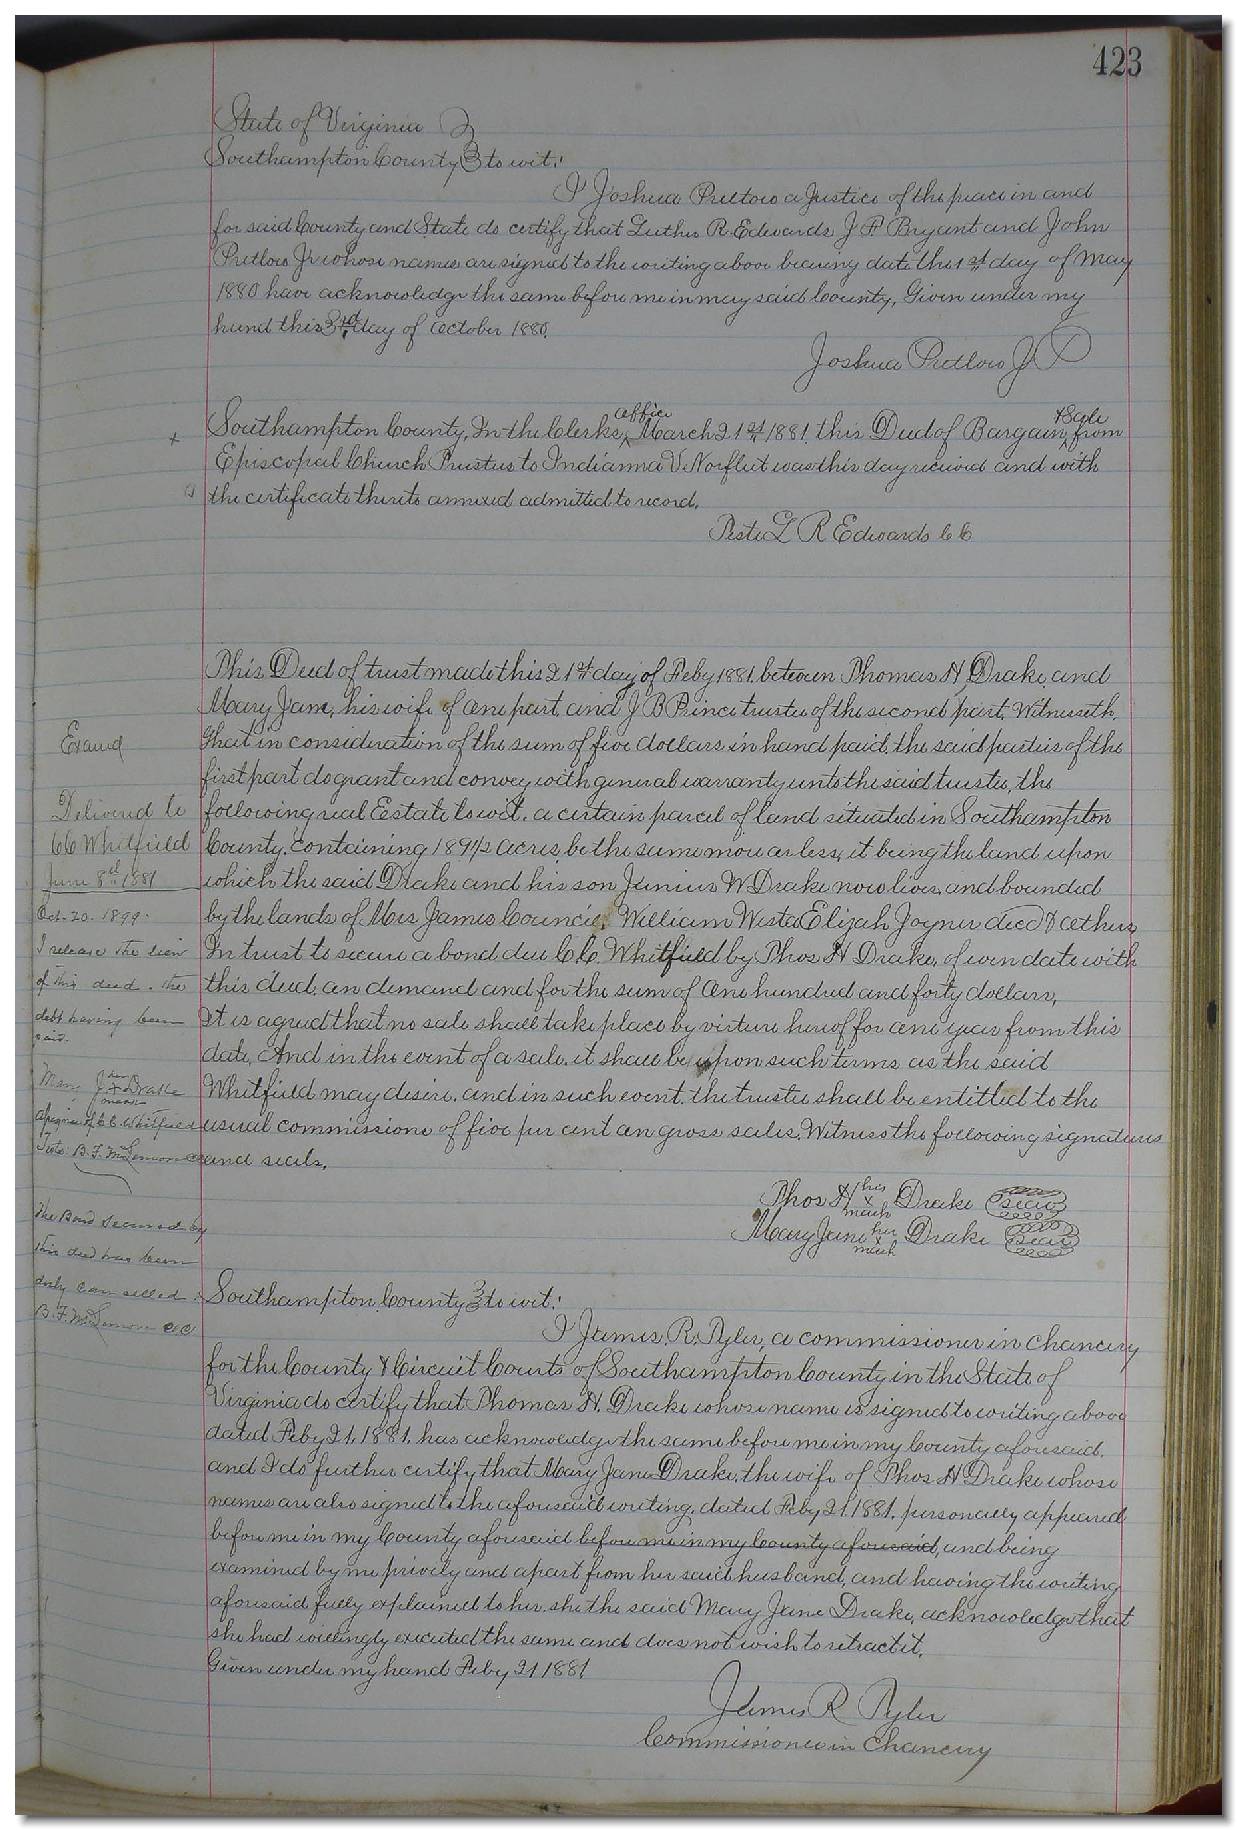 423
State of Virginia
Southampton County to wit:
I Joshua Pretlow a Justice of the peace in and
for said County and State do certify that Luther R. Edwards J F Bryant and John
Pretlow Jr whose names are signed to the writing above bearing date the 1st day of May
1880 have acknowledge the same before me in my said County, Given under my
hand this 3rd day of October 1880.
Joshua Pretlow J P
Southampton County, In the Clerks office March 21st 1881, this Deed of Bargain & Sale from
Episcopal Church Trustees to Indianna V. Norfleet was this day received and with
the certificate thereto annexed admitted to record.
Teste L R Edwards C C
This Deed of trust made this 21st day of Feby 1881. between Thomas H Drake and
Mary Jane, his wife of one part, and J B Prince trustee of the second part, Witnesseth,
That in consideration of the sum of five dollars in hand paid, the said parties of the
first part do grant and convey with general warranty unto the said trustee, the
following real Estate to wit. a certain parcel of land situated in Southampton
County, containing 189 1/2 acres, be the same more or less, it being the land upon
which the said Drake and his son Junius W Drake now lives, and bounded
by the lands of Mrs James Council, William Wester Elijah Joyner dec'd & others
In trust to secure a bond due C.C. Whitfield by Thos H Drake, of even date with
this deed, on demand and for the sum of One hundred and forty dollars,
It is agreed that no sale shall take place by virture hereof for one year from this
date, And in the event of a sale, it shall be upon such terms as the said
Whitfield may desire, and in such event, the trustee shall be entitled to the
usual commissions of five per cent on gross sales, Witness the following signatures
and seals.
Thos H his x mark Drake (Seal)
Mary Jane her x mark Drake (Seal)
Southampton County to wit:
I James R. Tyler, a commissioner in Chancery
for the County & Circuit Courts of Southampton County in the State of
Virginia do certify that Thomas H. Drake whose name is signed to writing above
dated Feby 21, 1881. has acknowledge the same before me in my County aforesaid.
and I do further certify that Mary Jane Drake, the wife of Thos H Drake whose
names are also signed to the aforesaid writing, dated Feby 21, 1881, personally appeared
before me in my County aforesaid before me in my County aforesaid, and being
examined by me privily and apart from her said husband, and having the writing
aforesaid fully explained to her, she the said Mary Jane Drake, acknowledge that
she had willingly executed the same and does not wish to retract it.
Given under my hand Feby 21 1881
James R Tyler
Commissioner in Chancery
Examd
Delivered to
C C Whitfield
June 8th 1881
Oct-20-1899-
I release the lien
of this deed. the
debt having been
paid.
Mary J her x mark Drake
of C.C. Whitfield
Teste B. F. McLemore CC
The Bond secured by
this deed has been
duly cancelled
B. F. McLemore CC